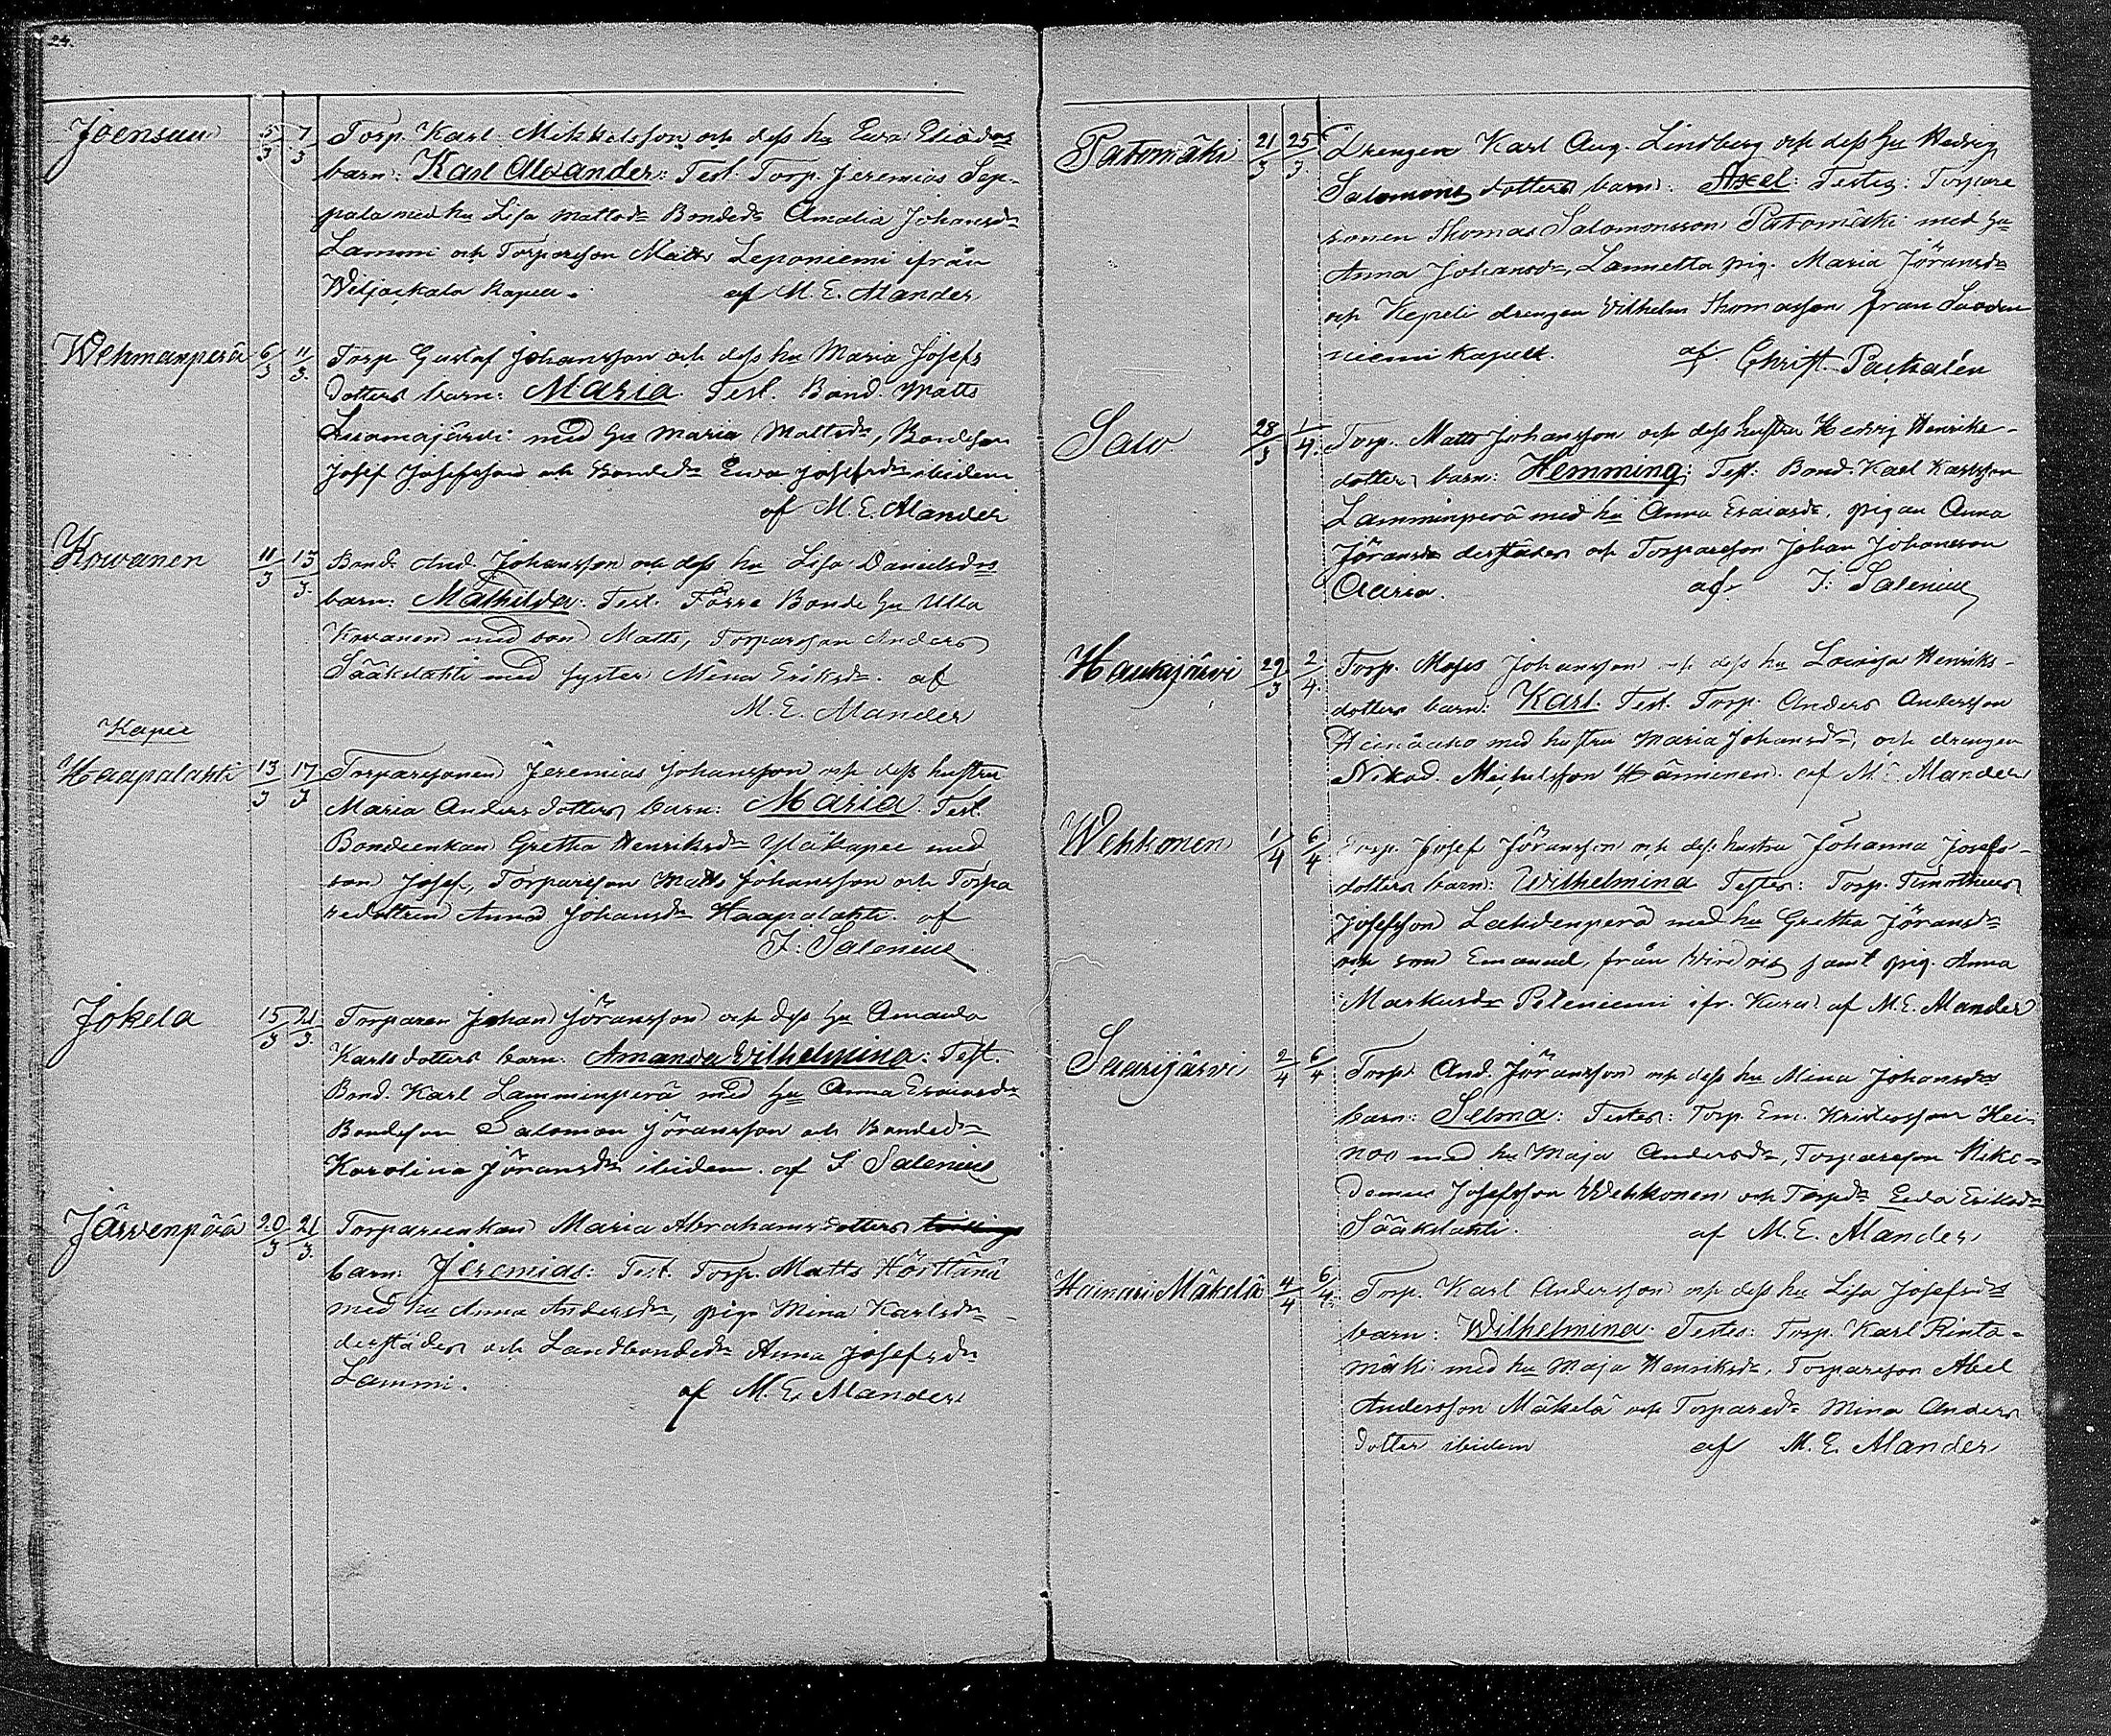 24.
Joensuu 5/3 7/3 Torp. Karl Mikkelsson och dess hu Ewa Eliædrs
barn: Karl Alexander: Test. Torp. Jeremias Sep-
pala med hu Lisa Mattsdr Bondedr Amalia Johansdr
Lammi och Torparson Matts Leponiemi ifrån
Wiljakkala Kapell. af M. E. Alander
Wehmanperä 6/3 11/3. Torp Gustaf Johansson och dess hu Maria Josefs
dotters barn: Maria. Test. Bond. Matts
Luomajärvi med hu Maria Mattsdr, Bondeson
Josef Josefsson och Bondedr Ewa Josefsdr ibidem
af M. E. Alander
Kowanen 11/3 13/3. Bond. And. Johansson och dess hu Lisa Danielsdrs
barn: Mathilda: Test. Förra Bonde hu Ulla
Kowanen med son Matts, Torparson Anders
Sääkslahti med syster Mina Eriksdr. af
M. E. Alander
Kapee
Haapalahti 13/3 17/3 Torparsonen Jeremias Johansson och dess hustru
Maria Anders dotters barn: Maria. Test.
Bondeenkan Gretha Henriksdr Yläkapee med
son Josef, Torparson Matts Johansson och Torpa
redottren Anna Johansdr Haapalahti. af
J. Salenius
Jokela 15/3 21/3. Torparen Johan Jöransson och dess hu Amanda
Karlsdotters barn: Amanda Wilhelmina: Test.
Bond. Karl Lamminperä med hu Anna Esaiasdr
Bondeson Salomon Jöransson och Bondedr
Karolina Jöransdr ibidem. af J Salenius
Järvenpää 20/3 21/3. Torpareenkan Maria Abrahamsdotters
barn: Jeremias: Test. Torp. Matts Hörtlänä
med hu Anna Andersdr, pig. Mina Karlsdr
derstädes och Landbondedr Anna Josefsdr
Lammi. af M. E. Alander
Patomäki 21/3 25/3. Drengen Karl Aug. Lindberg och dess hu Hedvig
Salomons dotters barn: Axel: Testes: Torpare
sonen Thomas Salomonsson Patomäki med hu
Anna Johansdr, Lannetta pig. Maria Jöransdr
och Kepeli drengen Vilhelm Thomasson från Suoden
niemi kapell. af Christ. Paskalén
Salo 28/3 1/4. Torp. Matts Johansson och dess hustru Hedvig Henriks-
dotters barn: Hemming: Test. Bond. Karl Karlsson
Lamminperä med hu Anna Esaiasdr, pigan Anna
Jöransdr derstädes och Torparson Johan Johansson
Claria. af J: Salenius
Haukijärvi 29/3 2/4. Torp. Moses Johansson och dess hu Lovisa Henriks-
dotters barn: Karl. Test. Torp. Anders Andersson
Heinäaho med hustru Maria Johansdr, och drengen
Nikod. Michelsson Hänninen. af M. E. Alander
Wehkonen 1/4 6/4 Torp. Josef Jöransson och dess hustru Johanna Josefs-
dotters barn: Wilhelmina Testes: Torp. Timotheus
Josefsson Lahdenperä med hu Gretha Jöransdr
och son Emanuel, från Wirdois samt pig. Anna
Markusdr Pileniemi ifr. Kuru af M. E. Alander
Saarijärvi 2/4 6/4 Torp. And. Jöransson och dess hu Mina Johansdrs
barn: Selma: Testes: Torp. Em. Kristersson Hei-
noo med hu Maja Andersdr, Torparson Niko-
demus Josefsson Wehkonen och Torpdr Ewa Eriksdr
Sääkslahti. af M. E. Alander
Heinari Mäkelä 4/4 6/4. Torp. Karl Andersson och dess hu Lisa Josefsdrs
barn: Wilhelmina. Testes: Torp. Karl Rinta-
mäki med hu Maja Henriksdr, Torparson Abel
Andersson Mäkelä och Torparedr Mina Anders
dotter ibidem af M. E. Alander